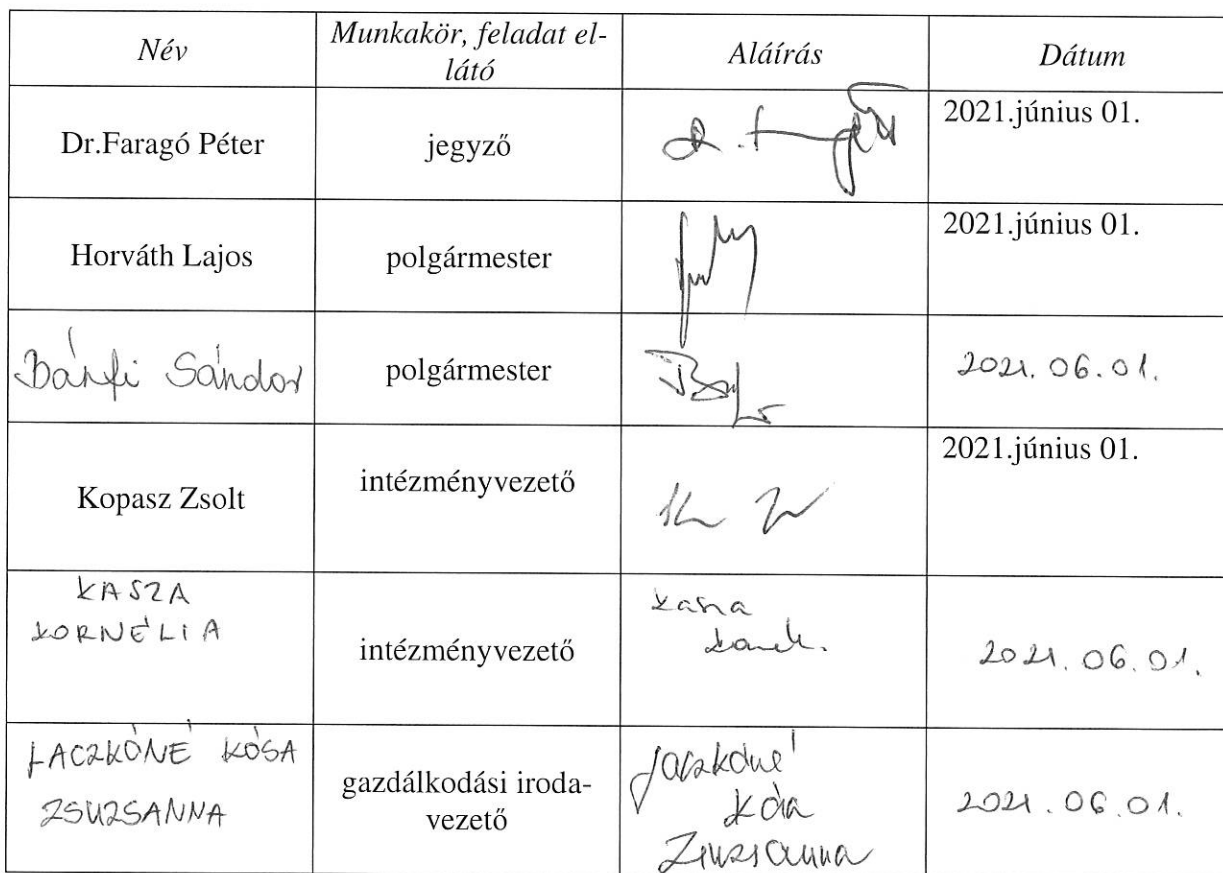 Név
Munkakör, feladat el-
látó
Aláírás
Dátum
Dr.Faragó Péter
jegyző
2021.június 01.
Horváth Lajos
polgármester
2021.június 01.
Bánfi Sándor
polgármester
2021. 06. 01.
Kopasz Zsolt
intézményvezető
2021.június 01.
KASZA
KORNÉLIA
intézményvezető
Kasza
2021. 06. 01.
LACZKÓNÉ KÓSA
ZSUZSANNA
gazdálkodási iroda-
vezető
Laczkóné
Kósa
Zsuzsanna
2021. 06. 01.